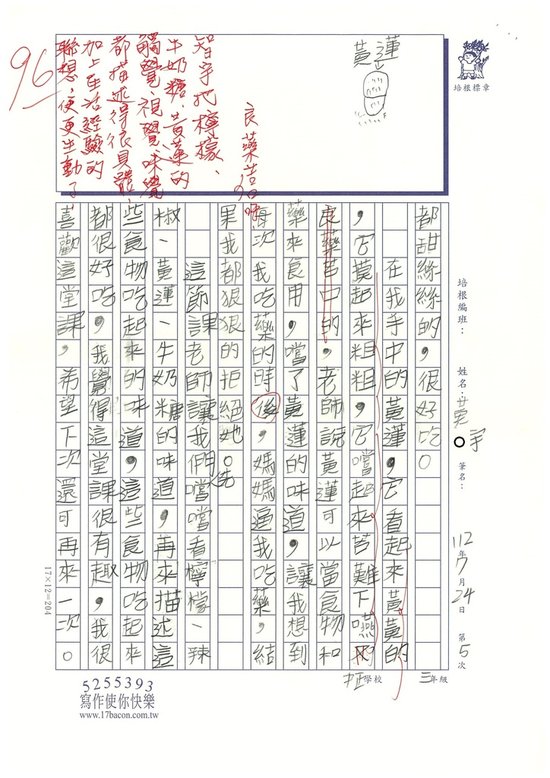 培根標章
黃蓮
良藥苦口
96
智宇把檸檬、
牛奶糖、黃蓮的
觸覺、視覺、味覺
都描述得很具體,
加上生活經驗的
聯想,便更生動了。
培根編班:
姓名:
宇
筆名:
112年7月24日
第5次
中正學校
三年級
都甜絲絲的,很好吃。
在我手中的黃蓮,它看起來黃黃的
,它摸起來粗粗,它嚐起來苦難下嚥
良藥苦口的,老師說黃蓮可以當食物和
藥來食用,嚐了黃蓮的味道,讓我想到
每次我吃藥的時後,媽媽逼我吃藥,結
果我都狠狠的拒絕她。
這節課老師讓我們先嚐嚐看檸檬、辣
椒、黃蓮、牛奶糖的味道,再來描述這
些食物吃起來的味道,這些食物吃起來
都很好吃,我覺得這堂課很有趣,我很
喜歡這堂課,希望下次還可再來一次。
17×12=204
5255393
寫作使你快樂
www.17bacon.com.tw